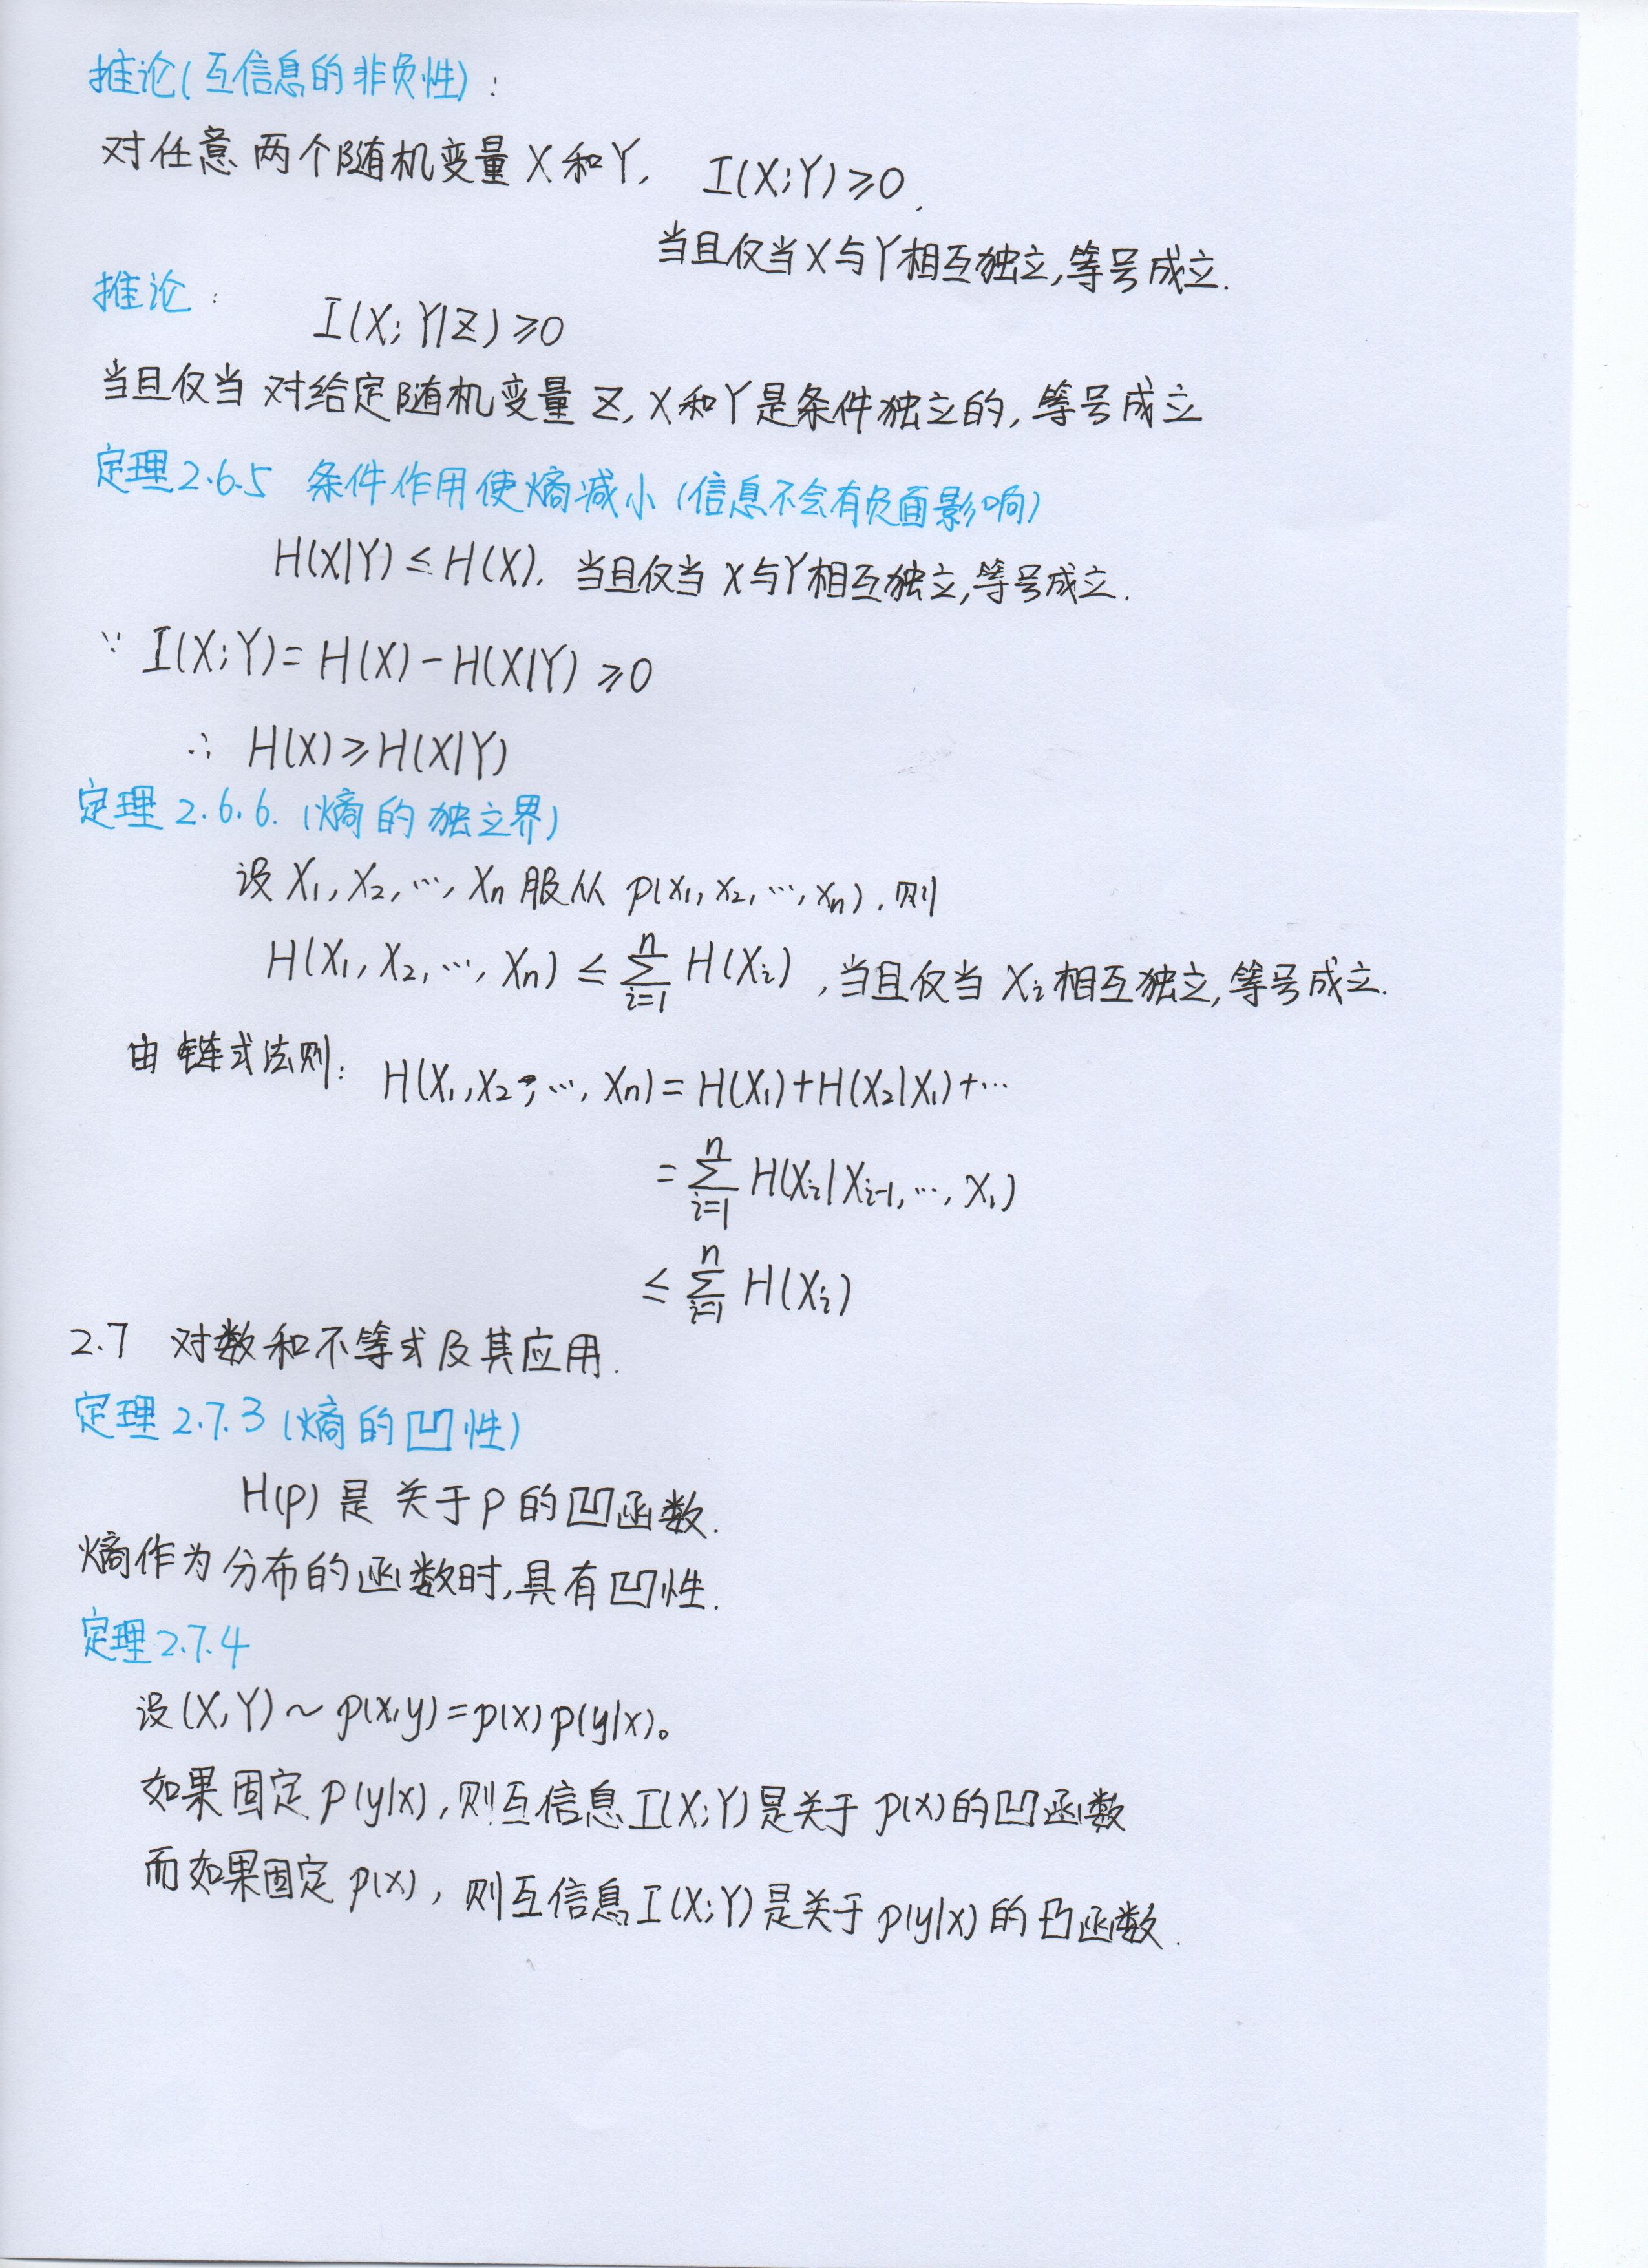 推论(互信息的非负性):
对任意两个随机变量X和Y, I(X;Y)≥0.
当且仅当X与Y相互独立,等号成立.
推论: I(X;Y|Z)≥0
当且仅当对给定随机变量Z,X和Y是条件独立的,等号成立
定理2.6.5 条件作用使熵减小(信息不会有负面影响)
H(X|Y)≤H(X). 当且仅当X与Y相互独立,等号成立.
∵ I(X;Y)=H(X)-H(X|Y)≥0
∴ H(X)≥H(X|Y)
定理2.6.6.(熵的独立界)
设X₁,X₂,…,Xn服从p(x₁,x₂,…,xn).则
H(X₁,X₂,…,Xn)≤∑ⁿᵢ₌₁H(Xᵢ),当且仅当Xᵢ相互独立,等号成立.
由链式法则: H(X₁,X₂,…,Xn)=H(X₁)+H(X₂|X₁)+…
=∑ⁿᵢ₌₁H(Xᵢ|Xᵢ₋₁,…,X₁)
≤∑ⁿᵢ₌₁H(Xᵢ)
2.7 对数和不等式及其应用.
定理2.7.3(熵的凹性)
H(p)是关于p的凹函数.
熵作为分布的函数时,具有凹性.
定理2.7.4
设(X,Y)~p(x,y)=p(x)p(y|x)。
如果固定p(y|x),则互信息I(X;Y)是关于p(x)的凹函数
而如果固定p(x),则互信息I(X;Y)是关于p(y|x)的凸函数.